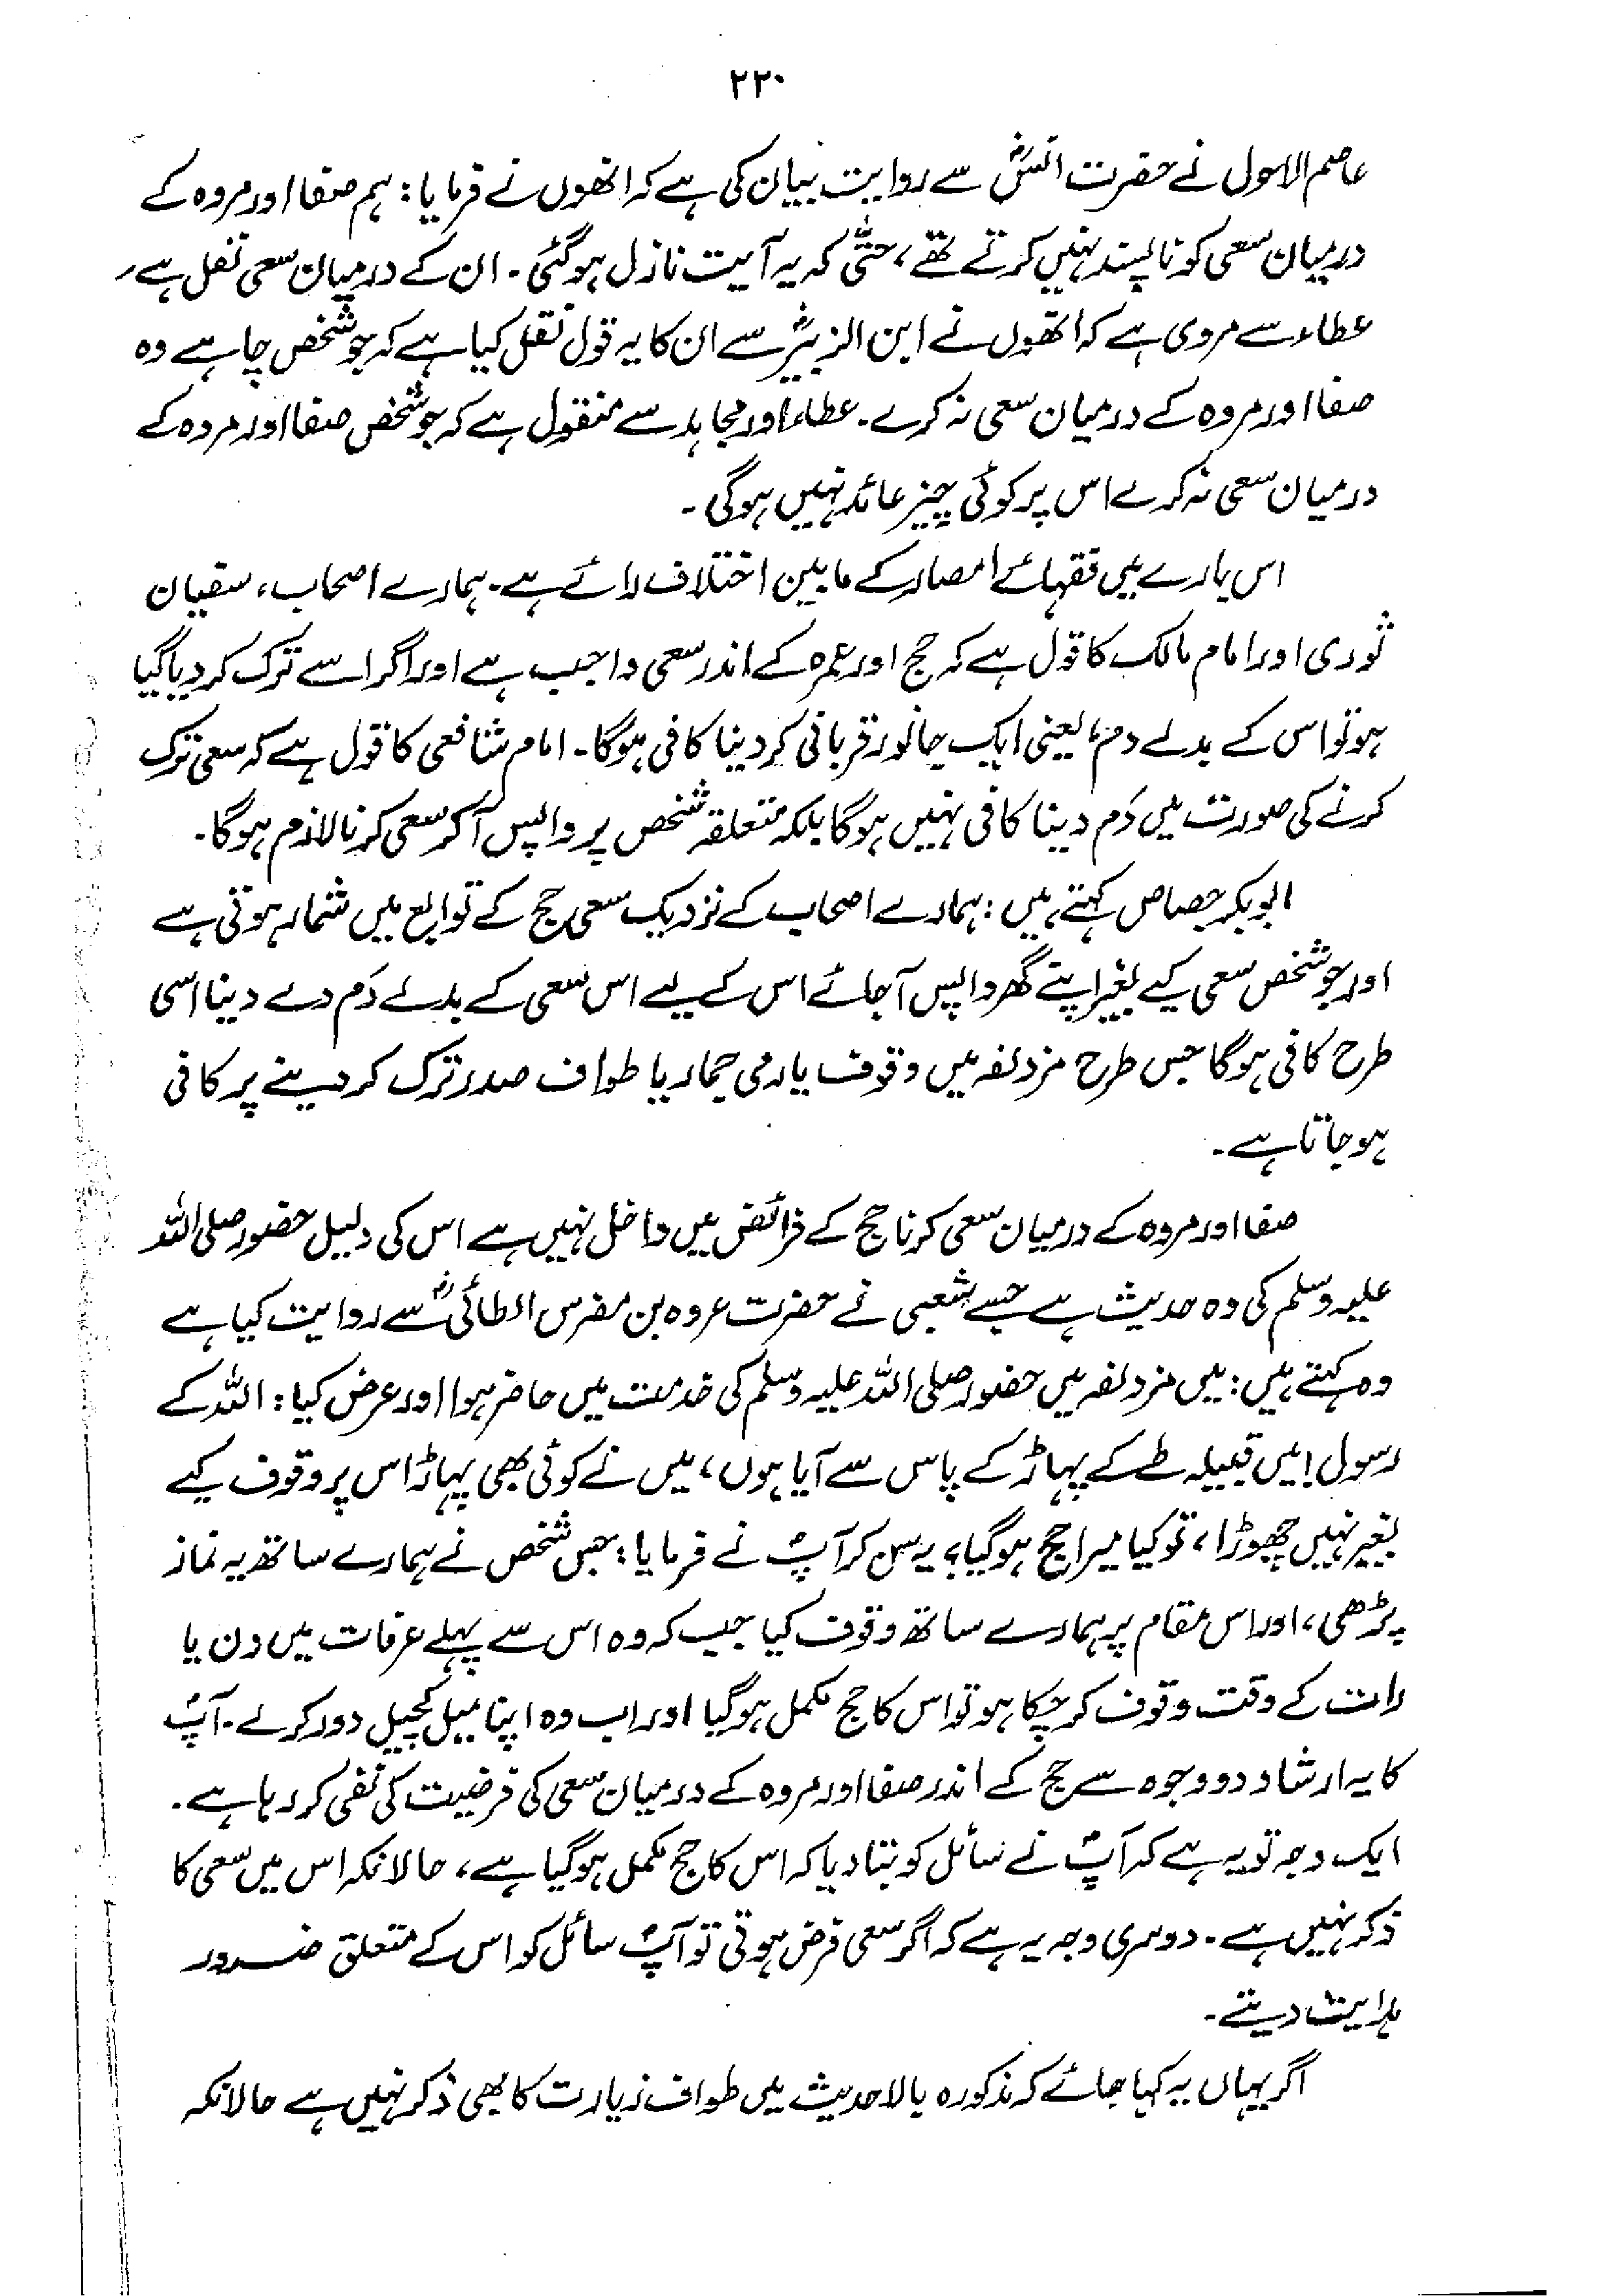 ۲۲۰
عاصم الاسول نے حضرت انسؓ سے روایت بیان کی ہے کہ انھوں نے فرمایا: ہم صفا اور مروہ کے
درمیان سعی کو ناپسند نہیں کرتے تھے، حتیٰ کہ یہ آیت نازل ہوگئی۔ ان کے درمیان سعی نفل ہے،
عطاء سے مروی ہے کہ انھوں نے ابن الزبیرؓ سے ان کا یہ قول نقل کیا ہے کہ جو شخص چاہے وہ
صفا اور مروہ کے درمیان سعی نہ کرے۔ عطاء اور مجاہد سے منقول ہے کہ جو شخص صفا اور مروہ کے
درمیان سعی نہ کرے اس پر کوئی چیز عائد نہیں ہوگی۔
اس بارے میں فقہائے امصار کے مابین اختلاف رائے ہے۔ ہمارے اصحاب، سفیان
ثوری اور امام مالک کا قول ہے کہ حج اور عمرہ کے اندر سعی واجب ہے اور اگر اسے ترک کر دیا گیا
ہو تو اس کے بدلے دم یعنی ایک جانور قربانی کر دینا کافی ہوگا۔ امام شافعی کا قول ہے کہ سعی ترک
کرنے کی صورت میں دَم دینا کافی نہیں ہوگا بلکہ متعلقہ شخص پر واپس آکر سعی کرنا لازم ہوگا۔
ابوبکر جصاص کہتے ہیں: ہمارے اصحاب کے نزدیک سعی حج کے توابع میں شمار ہوتی ہے
اور جو شخص سعی کیے بغیر اپنے گھر واپس آجائے اس کے لیے اس سعی کے بدلے دَم دے دینا اسی
طرح کافی ہوگا جس طرح مزدلفہ میں وقوف یا رمی جمار یا طواف صدر ترک کر دینے پر کافی
ہوجاتا ہے۔
صفا اور مروہ کے درمیان سعی کرنا حج کے فرائض میں داخل نہیں ہے اس کی دلیل حضور صلی اللہ
علیہ وسلم کی وہ حدیث ہے جسے شعبی نے حضرت عروہ بن مضرس الطائیؓ سے روایت کیا ہے
وہ کہتے ہیں: میں مزدلفہ میں حضور صلی اللہ علیہ وسلم کی خدمت میں حاضر ہوا اور عرض کیا: اللہ کے
رسول! میں قبیلہ طے کے پہاڑ کے پاس سے آیا ہوں، میں نے کوئی بھی پہاڑ اس پر وقوف کیے
بغیر نہیں چھوڑا، تو کیا میرا حج ہوگیا؟ یہ سن کر آپؐ نے فرمایا: جس شخص نے ہمارے ساتھ یہ نماز
پڑھی، اور اس مقام پر ہمارے ساتھ وقوف کیا جب کہ وہ اس سے پہلے عرفات میں دن یا
رات کے وقت وقوف کرچکا ہو تو اس کا حج مکمل ہوگیا اور اب وہ اپنا میل کچیل دور کرلے۔ آپؐ
کا یہ ارشاد دو وجوہ سے حج کے اندر صفا اور مروہ کے درمیان سعی کی فرضیت کی نفی کر رہا ہے۔
ایک وجہ تو یہ ہے کہ آپؐ نے سائل کو بتا دیا کہ اس کا حج مکمل ہوگیا ہے، حالانکہ اس میں سعی کا
ذکر نہیں ہے۔ دوسری وجہ یہ ہے کہ اگر سعی فرض ہوتی تو آپؐ سائل کو اس کے متعلق ضرور
ہدایت دیتے۔
اگر یہاں یہ کہا جائے کہ مذکورہ بالا حدیث میں طواف زیارت کا بھی ذکر نہیں ہے حالانکہ